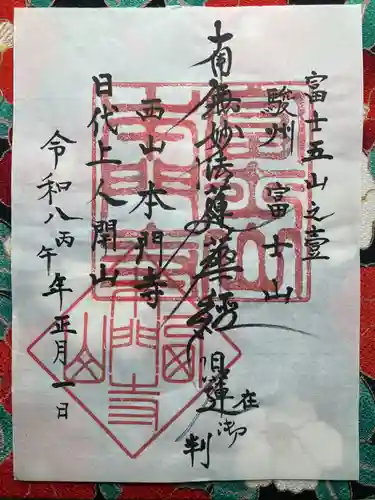 富士五山之壹
駿州 富士山
南無妙法蓮華経
日蓮
在御判
西山 本門寺
日代上人開山
令和八丙午年正月一日